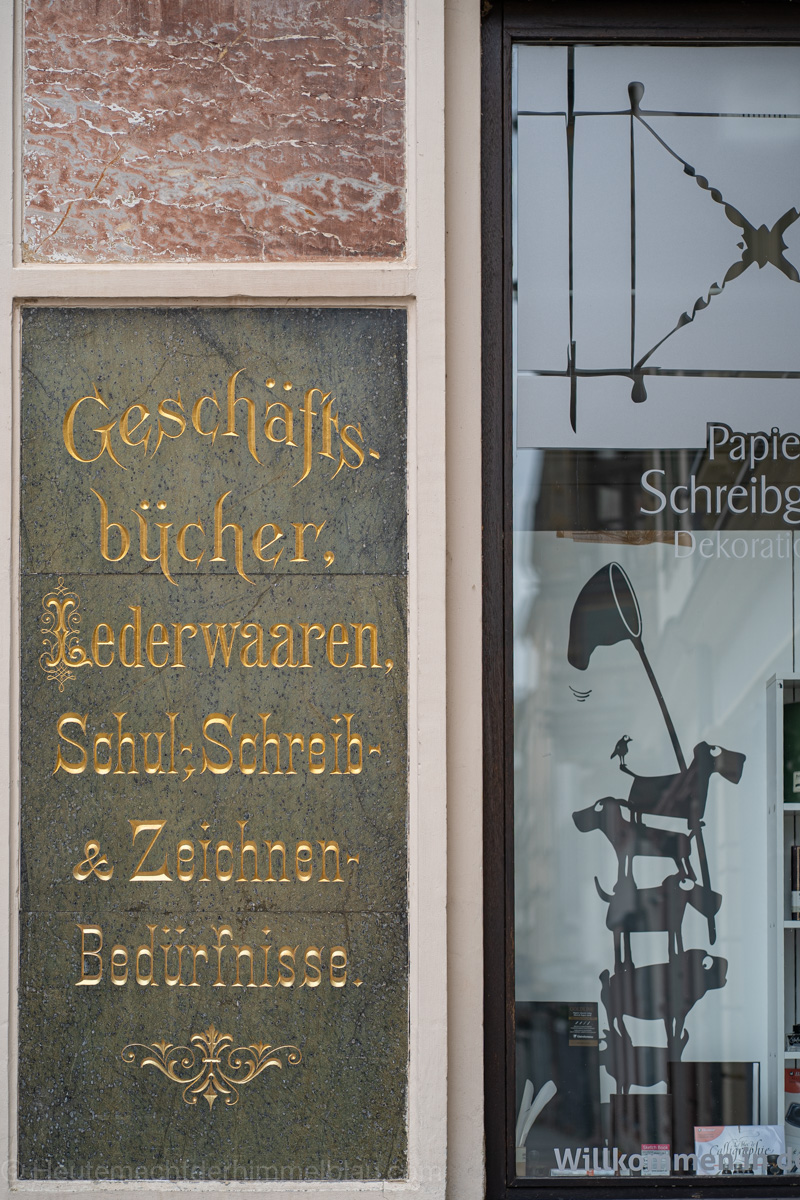 Geschäfts-
bücher,
Lederwaaren,
Schul-, Schreib-
& Zeichnen-
Bedürfnisse.
Papie
Schreibg
Dekoratio
Willkommen in d
Calligraphie
© Heutemachtderhimmelblau.com